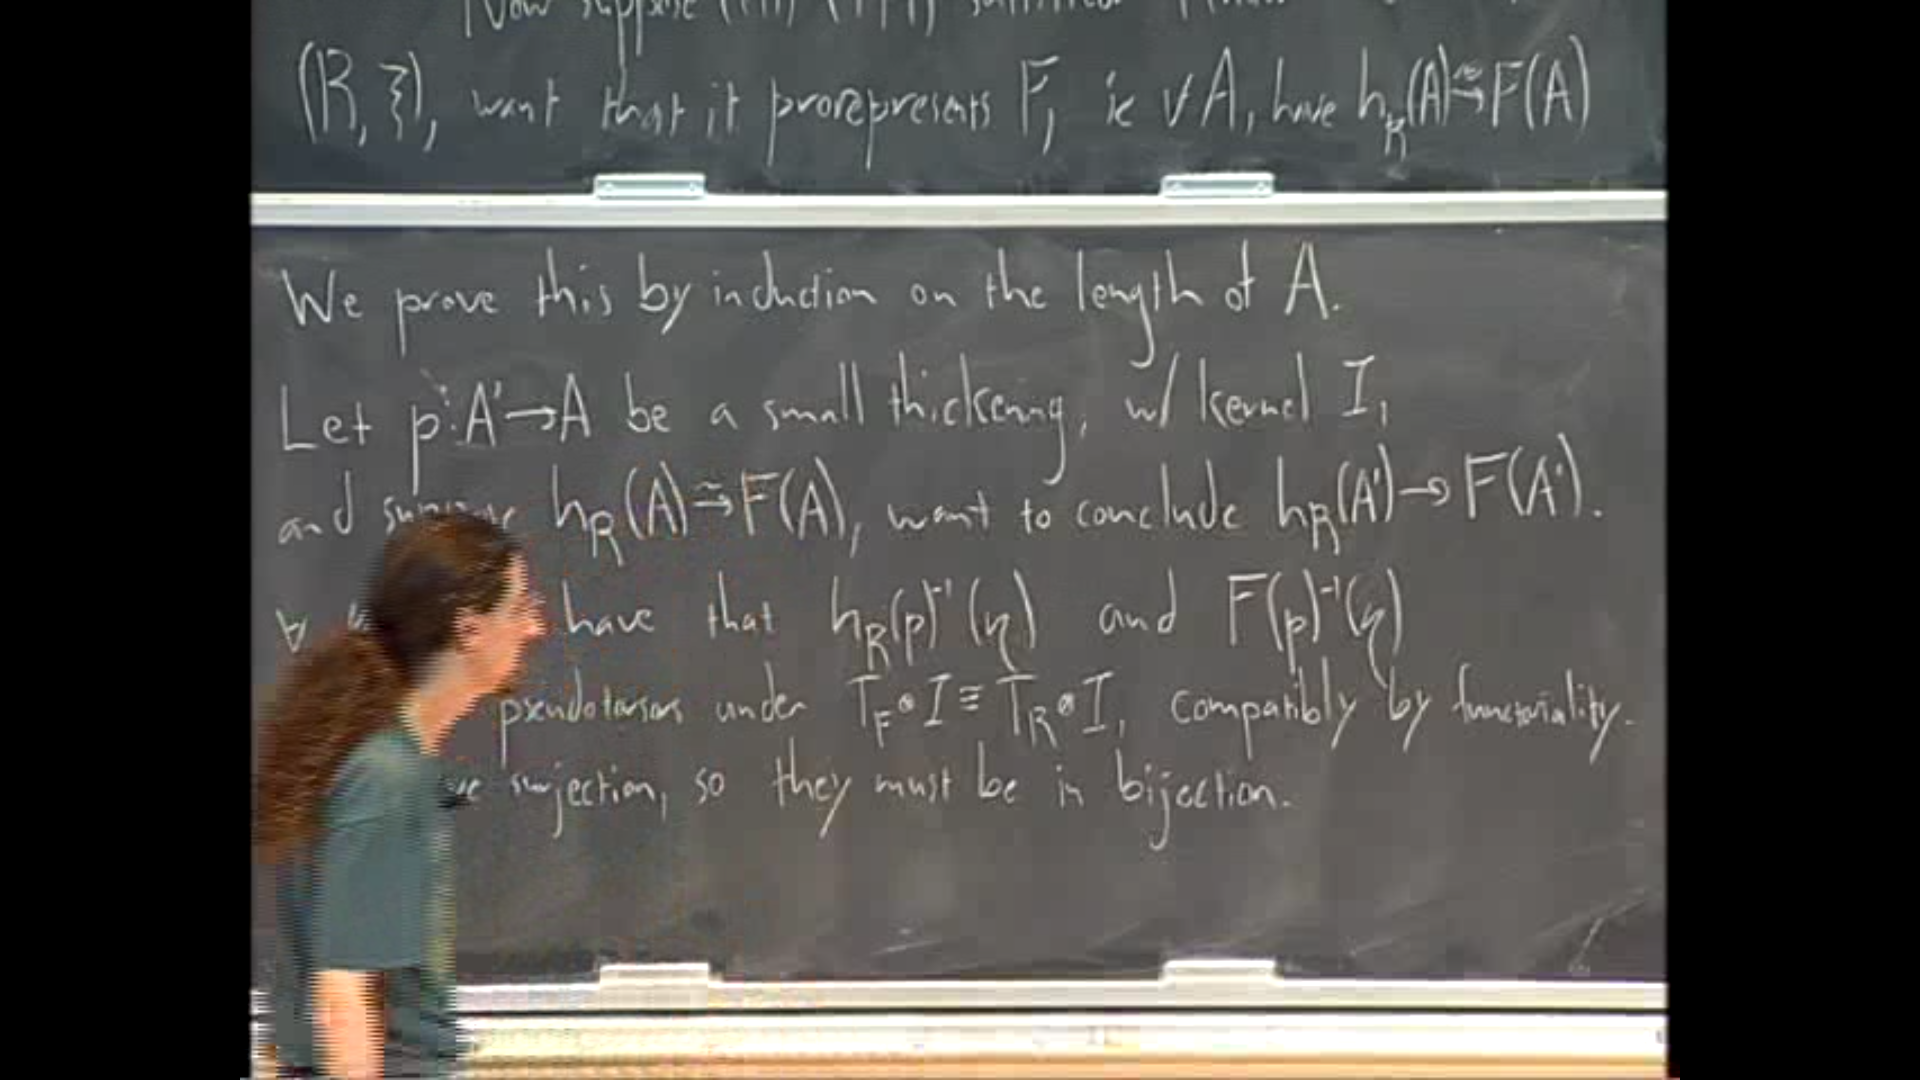 Now suppose
(R, ξ), want that it prorepresents F, ie ∀A, have h_R(A) ≅→ F(A)
We prove this by induction on the length of A.
Let p: A' → A be a small thickening, w/ kernel I,
and suppose h_R(A) ≅→ F(A), want to conclude h_R(A') → F(A').
∀ have that h_R(p)⁻¹(η) and F(p)⁻¹(η)
pseudotorsors under T_F ⊗ I ≡ T_R ⊗ I, compatibly by functoriality.
surjection, so they must be in bijection.